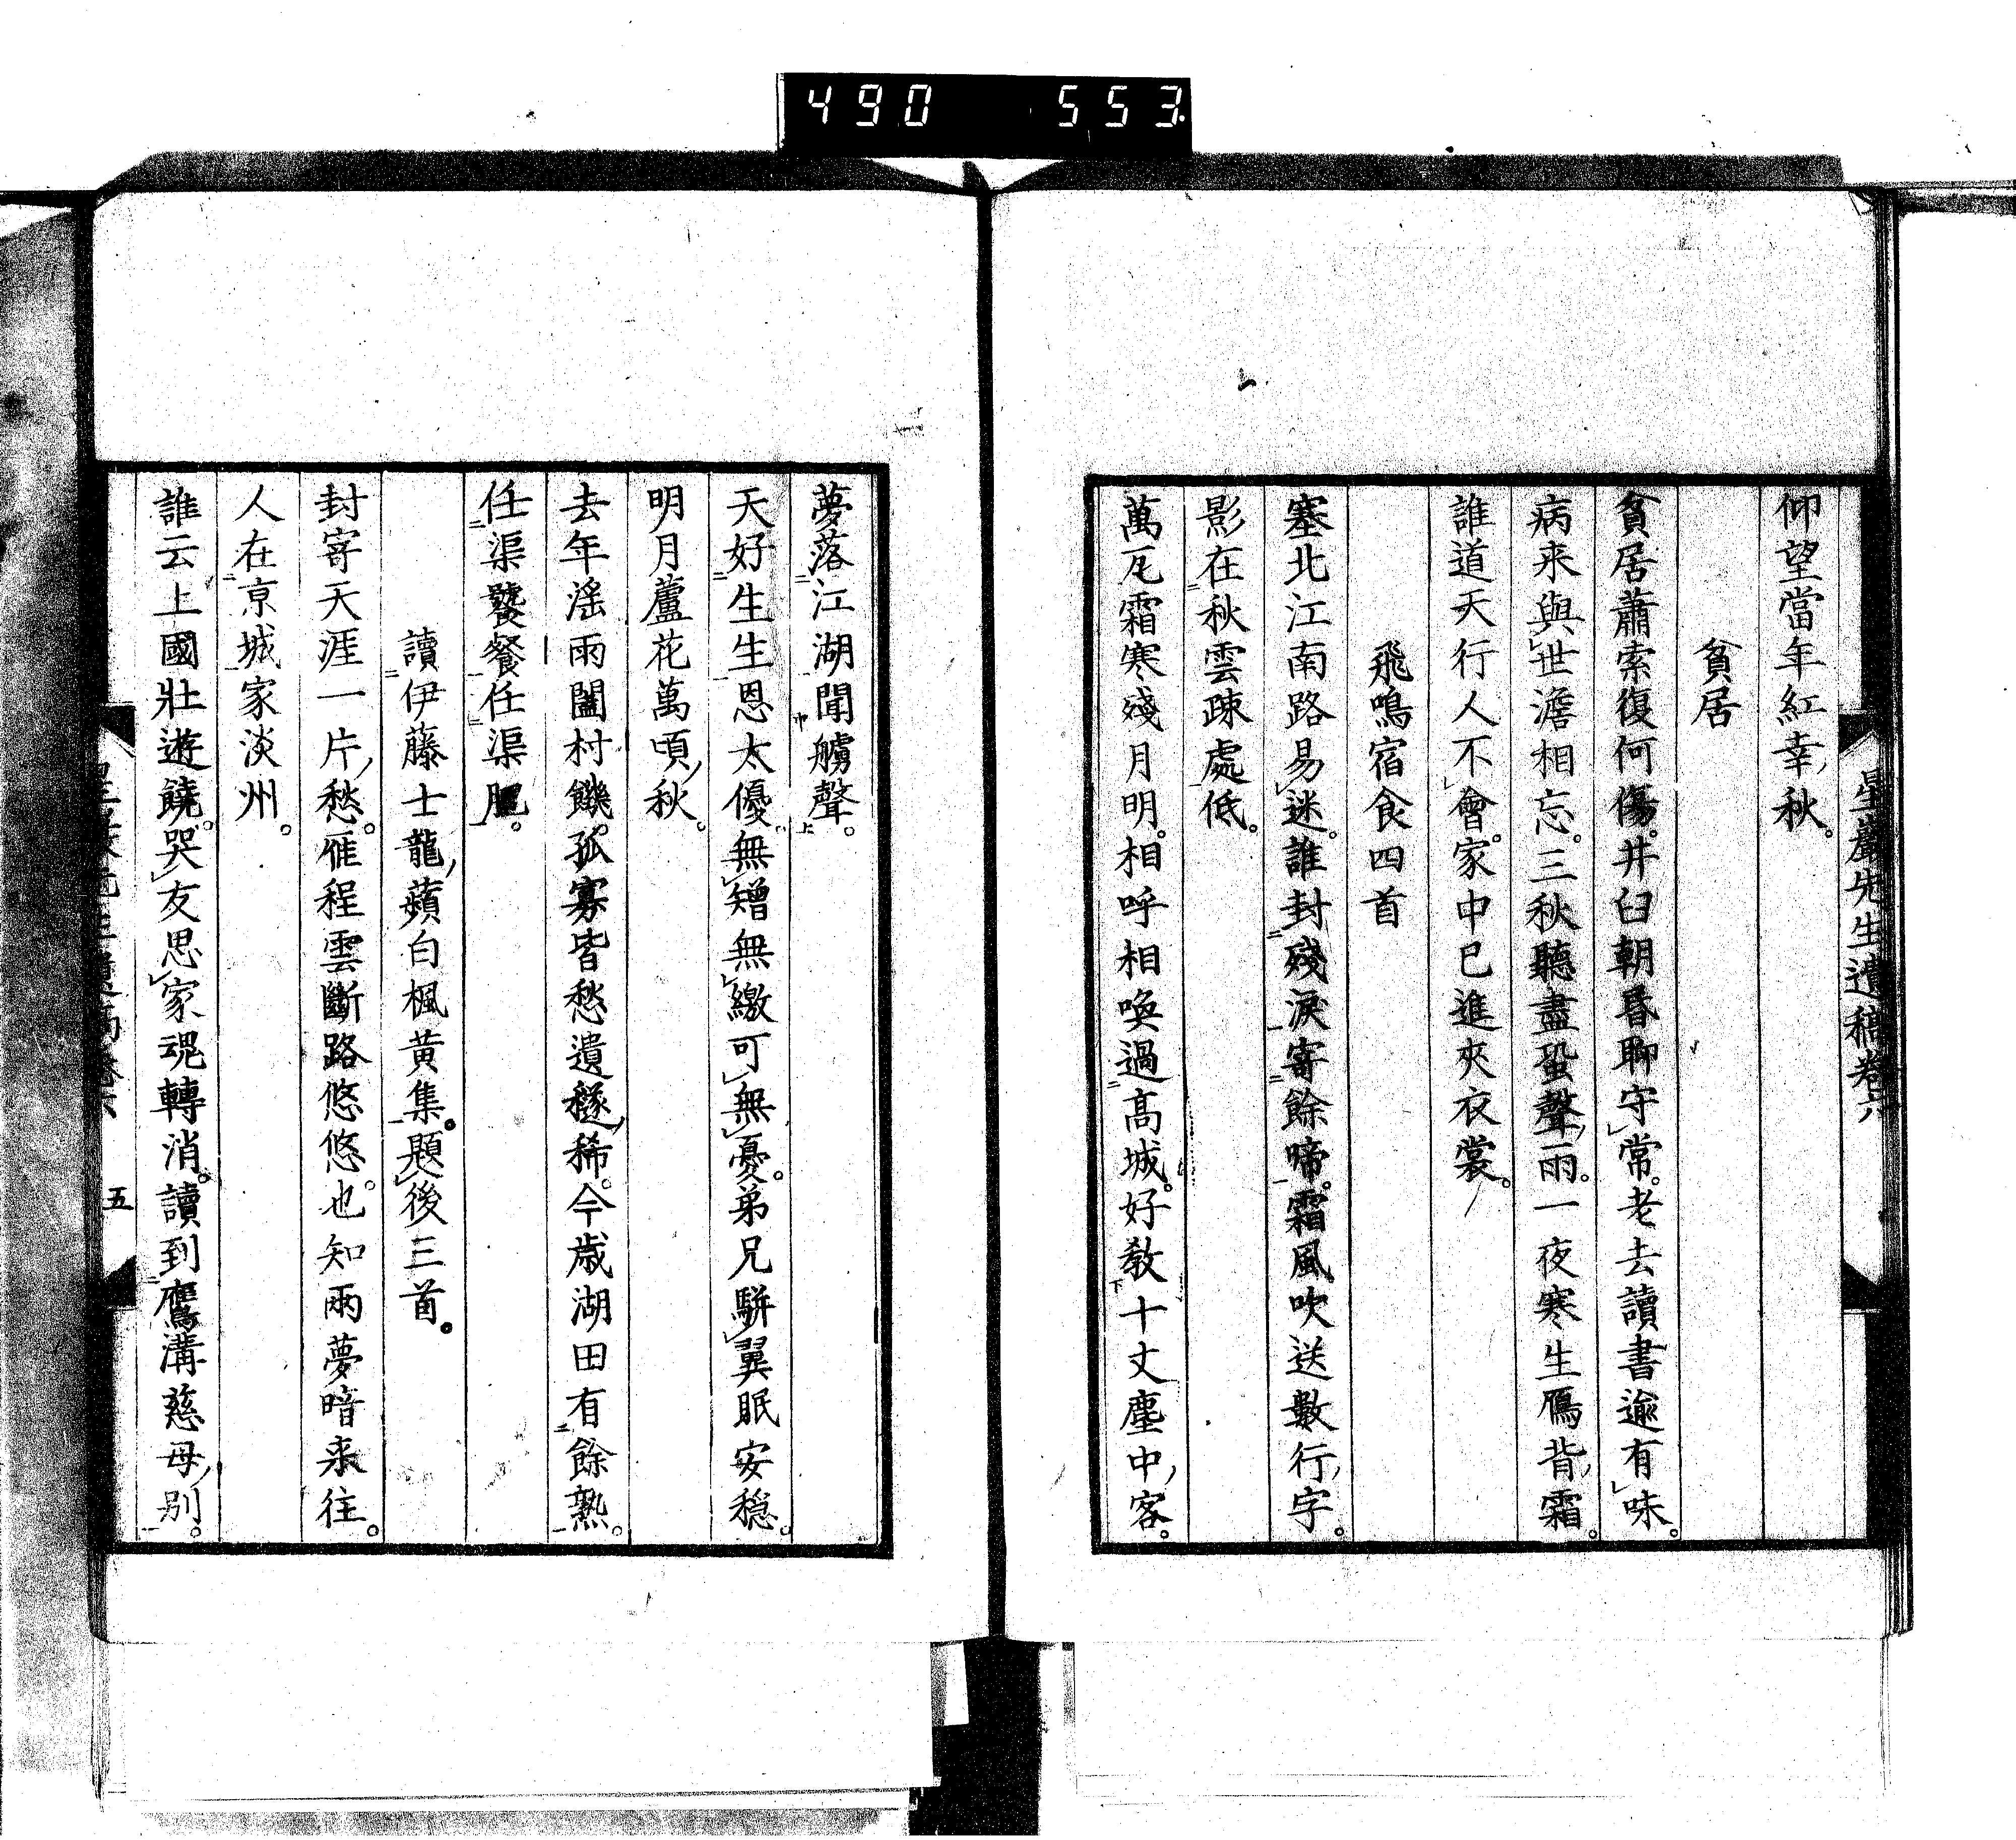 490 553
星巖先生遺稿卷六
仰望當年紅幸秋。
貧居
貧居蕭索復何傷。井臼朝昏聊守常。老去讀書逾有味。
病来與世澹相忘。三秋聽盡蛩聲雨。一夜寒生鴈背霜。
誰道天行人不會。家中已進夾衣裳。
飛鳴宿食四首
塞北江南路易迷。誰封殘淚寄餘啼。霜風吹送數行字。
影在秋雲疎處低。
萬瓦霜寒殘月明。相呼相喚過高城。好教十丈塵中客。
夢落江湖聞艣聲。
天好生生恩太優。無矰無繳可無憂。弟兄駢翼眠安穏。
明月蘆花萬頃秋。
去年滛雨闔村饑。孤寡皆愁遺穟稀。今歲湖田有餘熟。
任渠饕餮任渠肥。
讀伊藤士龍蘋白楓黄集。題後三首。
封寄天涯一片愁。雁程雲斷路悠悠。也知兩夢暗来往。
人在京城家淡州。
誰云上國壯遊饒。哭友思家魂轉消。讀到鷹溝慈母別。
五